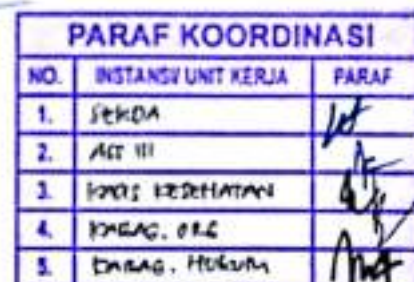 PARAF KOORDINASI
NO. INSTANSI/ UNIT KERJA PARAF
1. SEKDA
2. ASS III
3. KADIS KESEHATAN
4. KABAG. ORG
5. KABAG. HUKUM